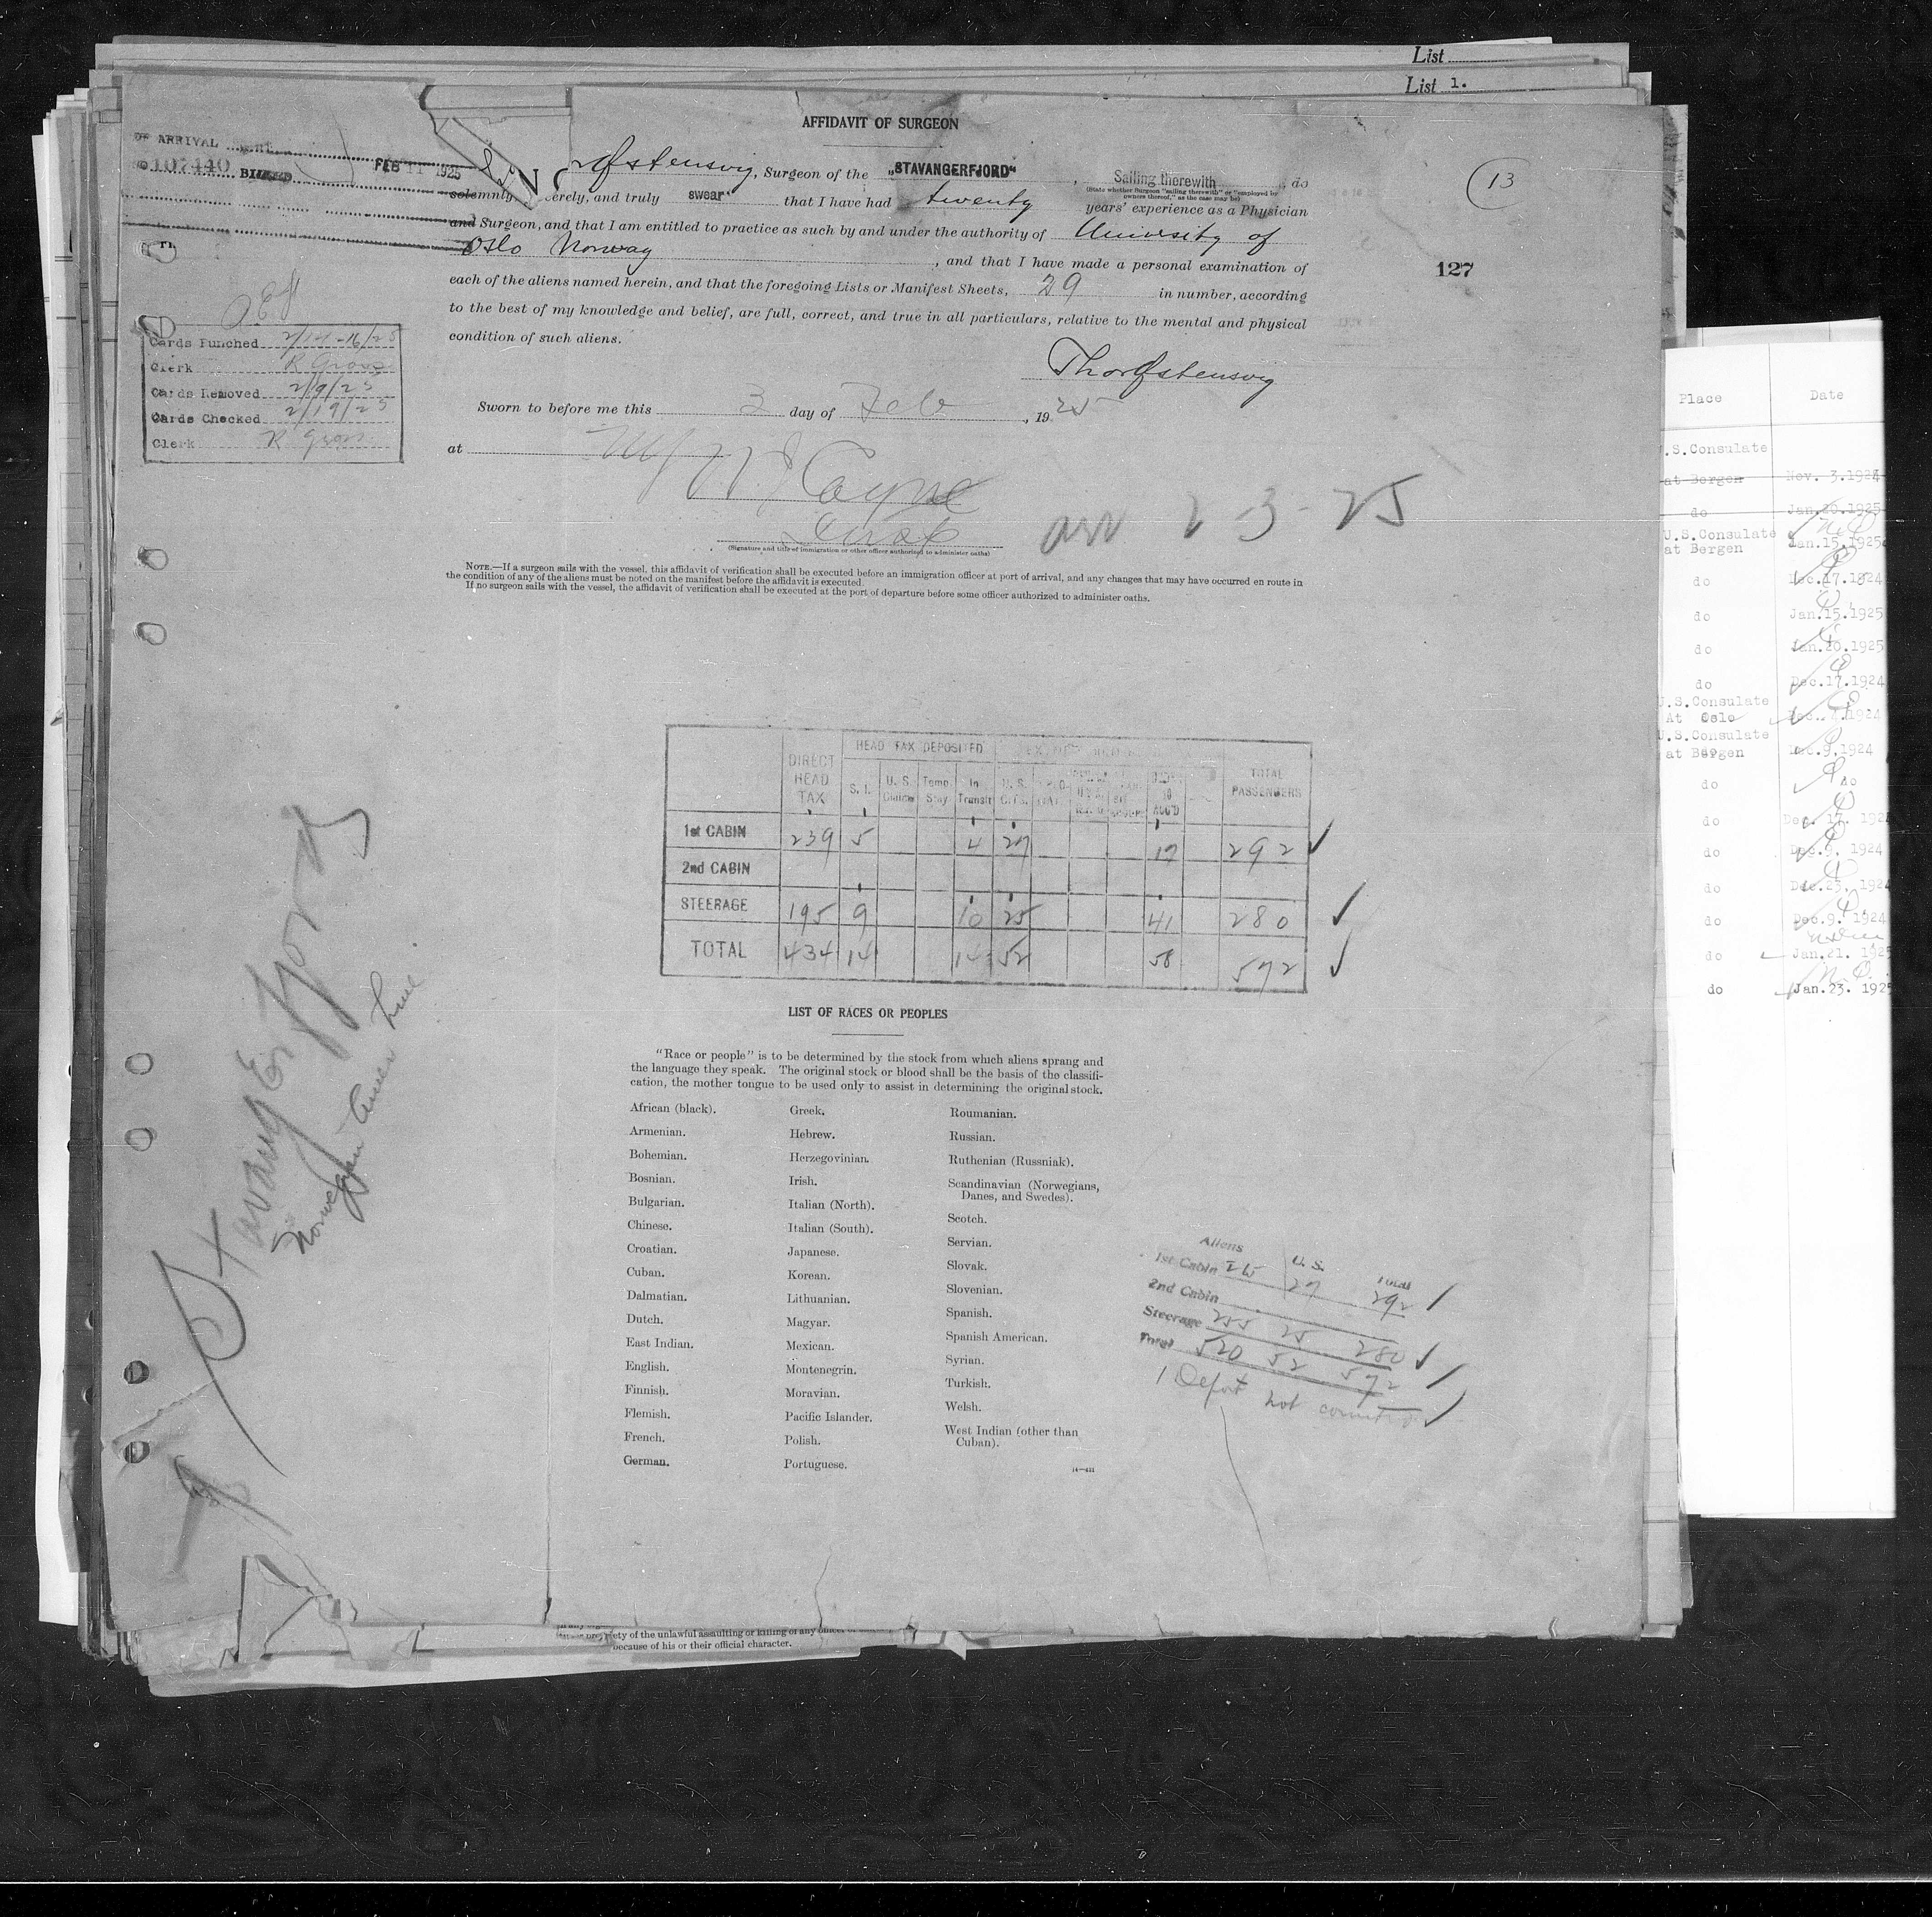 List
List 1.
AFFIDAVIT OF SURGEON
OF ARRIVAL
107440 BILLED FEB 11 1925
Surgeon of the „STAVANGERFJORD“, Sailing therewith, do
(State whether Surgeon "sailing therewith" or "employed by
owners thereof," as the case may be)
13
solemnly, erely, and truly swear that I have had twenty years' experience as a Physician
and Surgeon, and that I am entitled to practice as such by and under the authority of University of
Oslo Norway, and that I have made a personal examination of
127
each of the aliens named herein, and that the foregoing Lists or Manifest Sheets, 29 in number, according
to the best of my knowledge and belief, are full, correct, and true in all particulars, relative to the mental and physical
condition of such aliens.
Cards Punched
Clerk
Cards Removed 2/9/25
Cards Checked 2/19/25
Clerk
Sworn to before me this 3 day of Feb, 1925
at
arr 2-3-25
(Signature and title of immigration or other officer authorized to administer oaths)
NOTE.—If a surgeon sails with the vessel, this affidavit of verification shall be executed before an immigration officer at port of arrival, and any changes that may have occurred en route in
the condition of any of the aliens must be noted on the manifest before the affidavit is executed.
If no surgeon sails with the vessel, the affidavit of verification shall be executed at the port of departure before some officer authorized to administer oaths.
DIRECT HEAD TAX HEAD TAX DEPOSITED TOTAL PASSENGERS
S. I. U. S. Claims Temp. Stay In Transit U. S. CITS.
1st CABIN 239 5 4 27 17 292
2nd CABIN
STEERAGE 195 9 10 25 41 280
TOTAL 434 14 14 52 58 572
LIST OF RACES OR PEOPLES
"Race or people" is to be determined by the stock from which aliens sprang and
the language they speak. The original stock or blood shall be the basis of the classifi-
cation, the mother tongue to be used only to assist in determining the original stock.
African (black).
Armenian.
Bohemian.
Bosnian.
Bulgarian.
Chinese.
Croatian.
Cuban.
Dalmatian.
Dutch.
East Indian.
English.
Finnish.
Flemish.
French.
German.
Greek.
Hebrew.
Herzegovinian.
Irish.
Italian (North).
Italian (South).
Japanese.
Korean.
Lithuanian.
Magyar.
Mexican.
Montenegrin.
Moravian.
Pacific Islander.
Polish.
Portuguese.
Roumanian.
Russian.
Ruthenian (Russniak).
Scandinavian (Norwegians,
Danes, and Swedes).
Scotch.
Servian.
Slovak.
Slovenian.
Spanish.
Spanish American.
Syrian.
Turkish.
Welsh.
West Indian (other than
Cuban).
Aliens U. S. Total
1st Cabin 27 292
2nd Cabin
Steerage 255 25 280
Total 520 52 572
1 Deport not counted
Stavangerfjord
Norwegian Amer Line
ety of the unlawful assaulting or killing of any officer
because of his or their official character.
Place Date
U.S.Consulate
at Bergen Nov. 3.1924
do Jan.20.1925
U.S.Consulate
at Bergen Jan.15.1925
do Dec.17.1924
do Jan.15.1925
do Jan.20.1925
do Dec.17.1924
U.S.Consulate
At Oslo
U.S.Consulate
at Bergen Dec.9.1924
do do
do Dec. 17. 192
do Dec.9. 1924
do Dec.23. 1924
do Dec.9. 1924
do Jan.21. 1925
do Jan.23. 1925